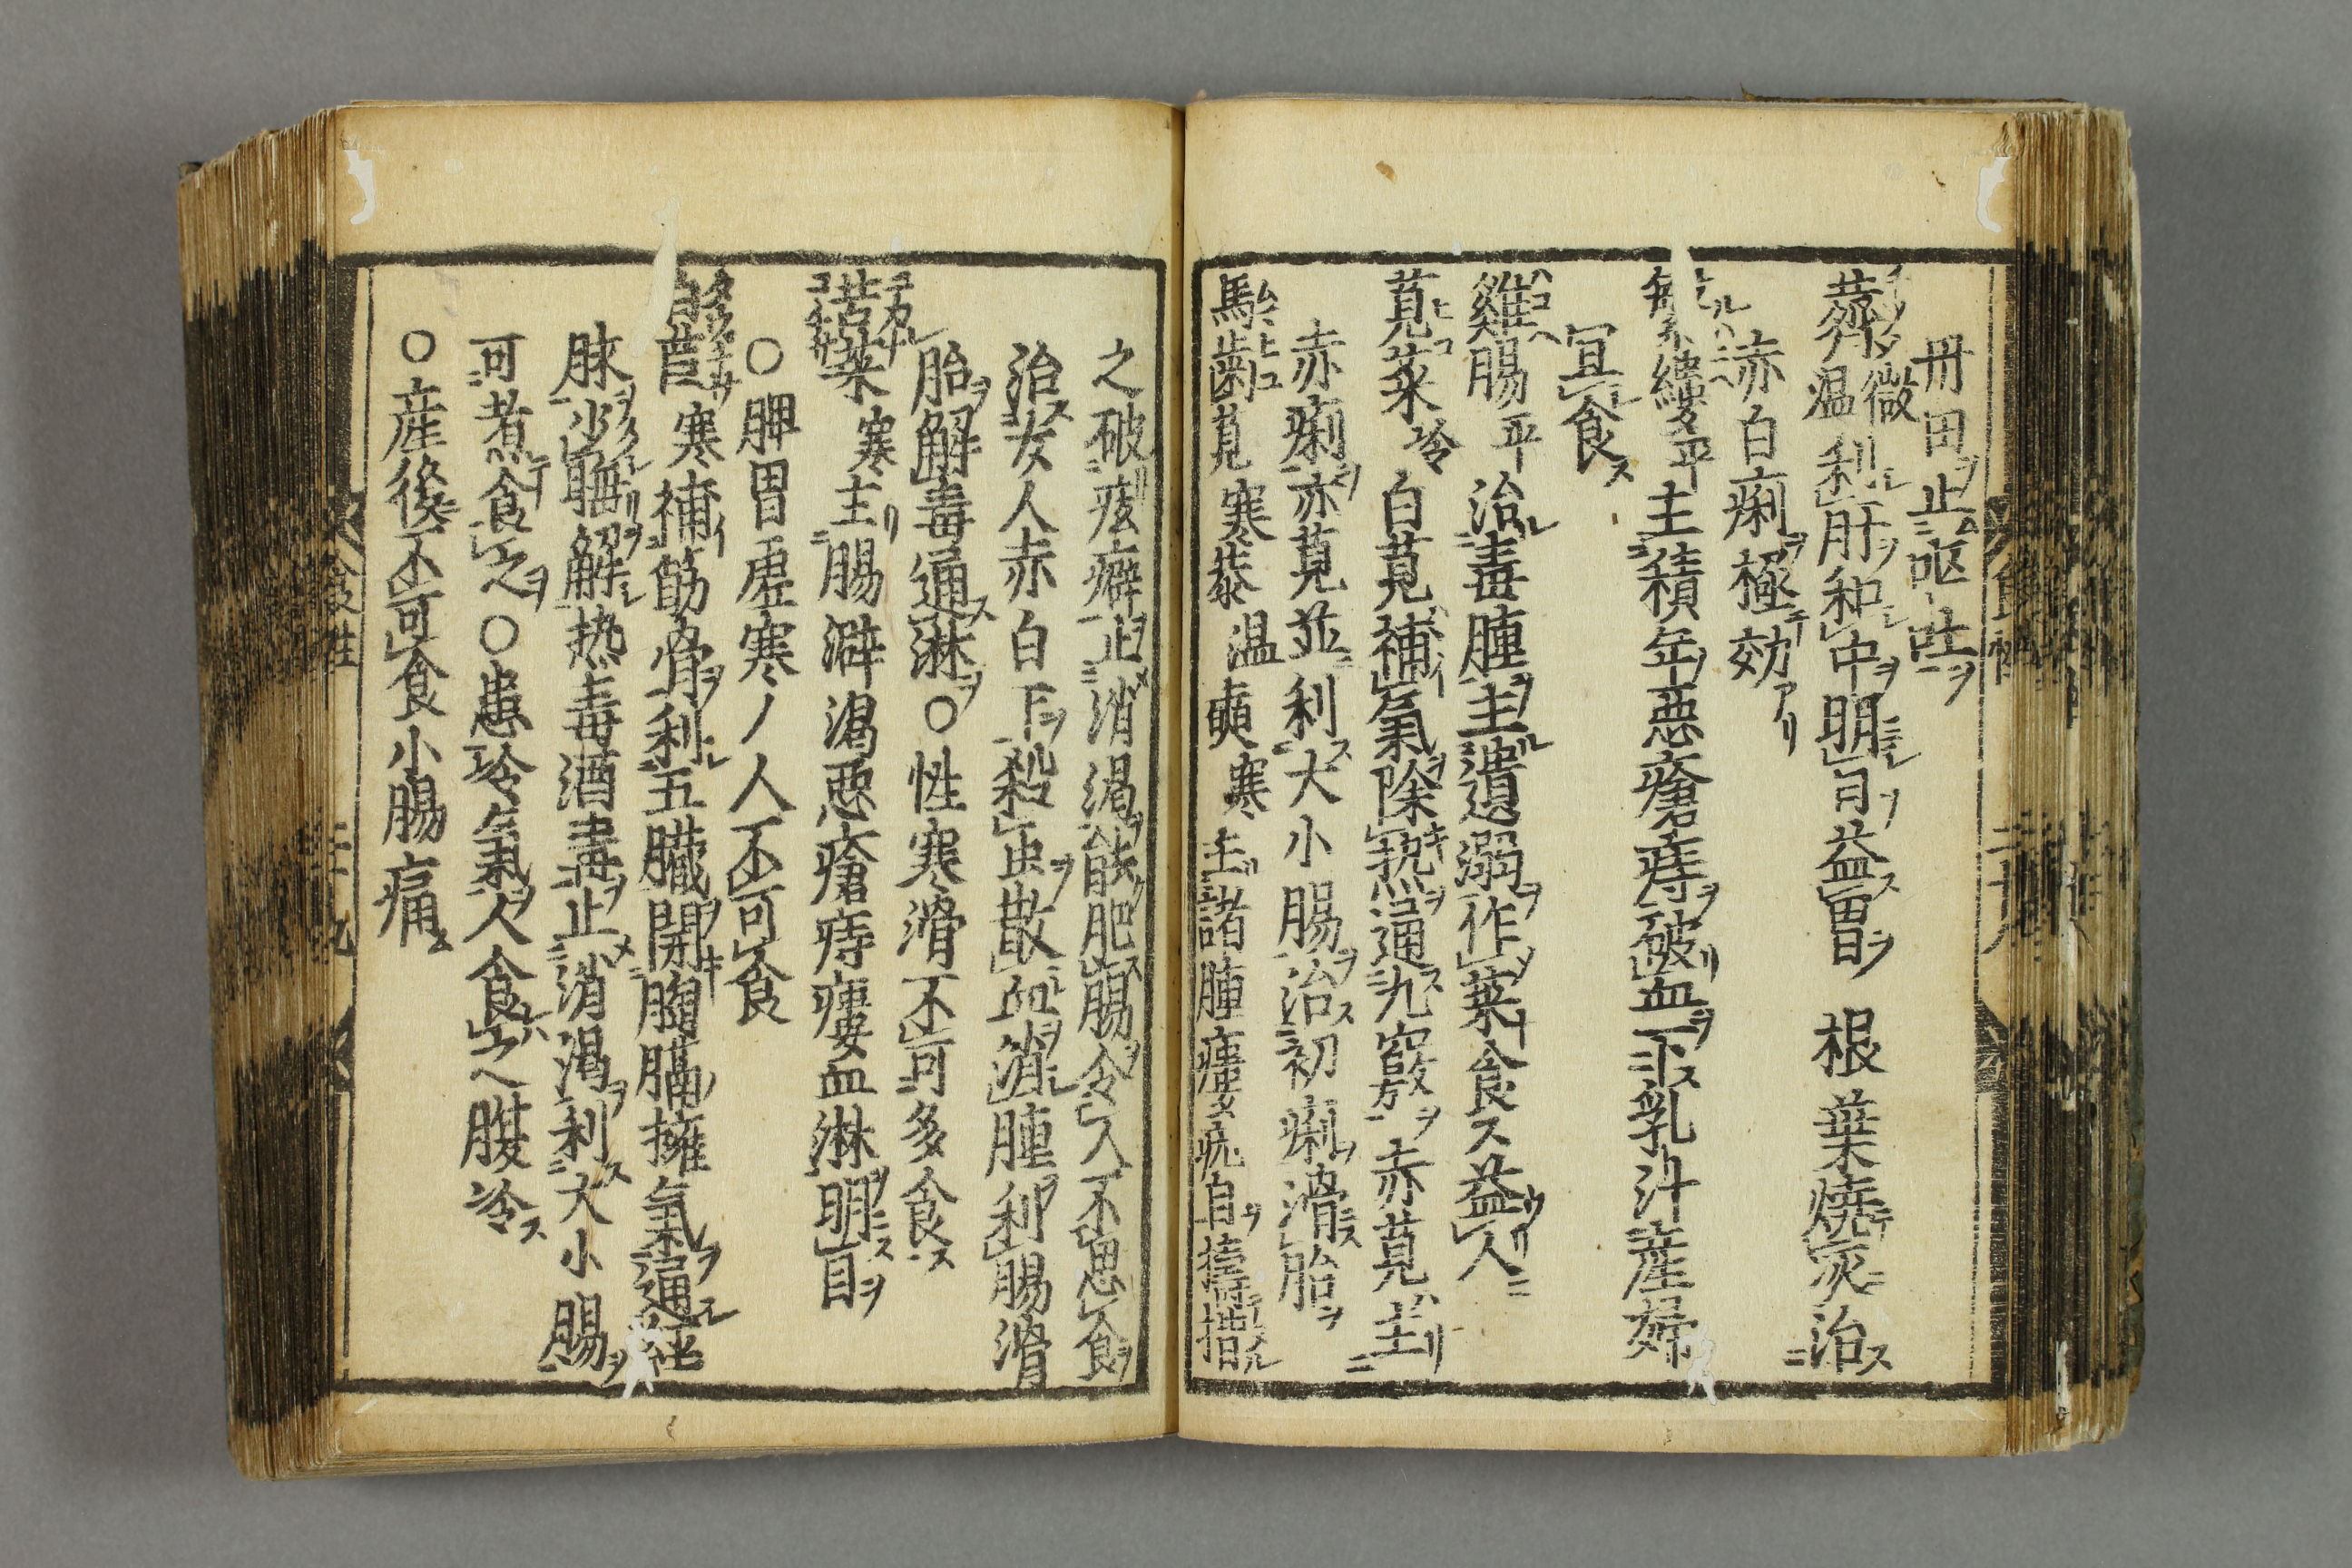 丹田止嘔吐
薺微温利肝和中明目益胃根葉燒灰治
赤白痢極効アリ
蘩縷平主積年惡瘡痔破血下乳汁産婦
冝食ス
雞腸平治毒腫主遺溺作菜食ス益人
莧菜冷白莧補氣除熱通九竅赤莧主
赤痢亦莧並利大小腸治初痢滑胎
馬齒莧寒葉温 寒主諸腫瘻疣自擣揩
之破痃癖止消渇能肥腸令人不思食
治女人赤白下殺虫散血消腫利腸滑
胎解毒通淋○性寒滑不可多食
苦菜寒主腸澼渇惡瘡痔瘻血淋明目
○脾胃虚寒ノ人不可食
白苣寒補筋骨利五臓開胸膈擁氣通経
脉 解熱毒酒毒止消渇利大小腸
可煮食之○患冷氣人食之腹冷
○産後不可食小腸痛